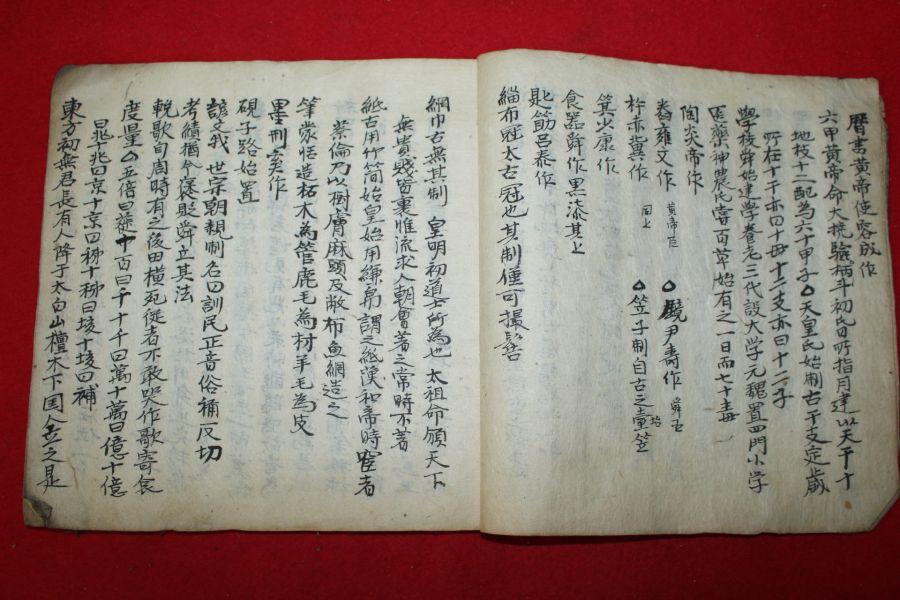 曆書黃帝使容成作
六甲黃帝命大撓驗柄斗初昏所指月建以天干十
地枝十二配為六十甲子 ○天皇氏始制古干支定歲
所在十干亦曰十母十二支亦曰十二子
學校舜始建學養老三代設大學元魏置四門小学
医藥神農氏甞百草始有之一日而七十毒
陶炎帝作
舂雍父作 黃帝臣 ○鏡尹壽作 舜臣
杵赤兾作 同上 ○笠子制自古之䑓笠
箕少康作
食器舜作黑漆其上
匙筯呂泰作
緇布冠太古冠也其制僅可撮髻
網巾古無其制 皇明初道士所為也 太祖命頒天下
無貴賤皆裹惟流求人朝會著之常時不著
紙古用竹簡始皇始用縑帛謂之紙漢和帝時宦者
蔡倫乃以樹膚麻頭及敝布魚網造之
筆蒙恬造柘木為管鹿毛為柱羊毛為皮
墨刑夷作
硯子路始置
諺文我 世宗朝親制名曰訓民正音俗補反切
考績猶今褒貶舜立其法
輓歌自周時有之後田橫死從者不敢哭作歌寄哀
度量 五倍曰蓰十十曰百十百曰千十千曰萬十萬曰億十億
曰兆十兆曰京十京曰秭十秭曰垓十垓曰補
東方初無君長有人降于太白山檀木下国人立之是